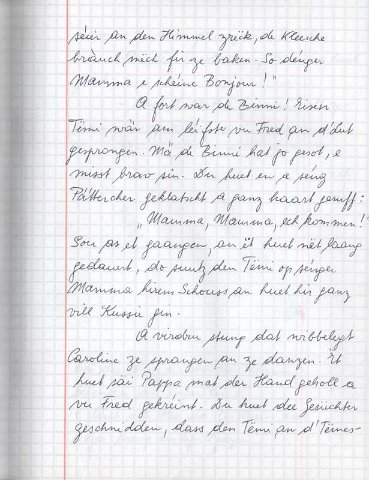 séier an den Himmel zréck, de Kleesche
bräuch mech fir ze baken. So dénger
Mamma e schéine Bonjour!"
A fort war de Binni! Eisen
Tëmi wär am léifste vu Fred an d'Lut
gesprongen. Mä de Binni hat jo gesot, e
misst brav sin. Du huet en a séng
Pättercher geklatscht a ganz haart geruff:
„Mamma, Mamma, ech kommen!"
Sou as et gaangen, an ët huet nët laang
gedauert, do souz den Tëmi op sénger
Mamma hirem Schouss an huet hir ganz
vill Kussie gin.
A virdru stung dat wibbelegt
Caroline ze sprangen an ze danzen. Ët
huet säi Pappa mat der Hand geholl a
vu Fred gekréint. Du huet dee Gesiichter
geschnidden, dass den Tëmi an d'Tëmes-